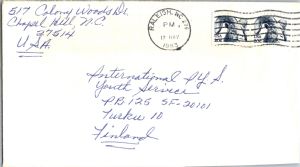 517 Colony Woods Dr.
Chapel Hill, N.C.
27514
U.S.A.
RALEIGH, NC
PM
17 MAY
1983
International P.Y.S.
Youth Service
PB 125 SF-20101
Turku 10
Finland